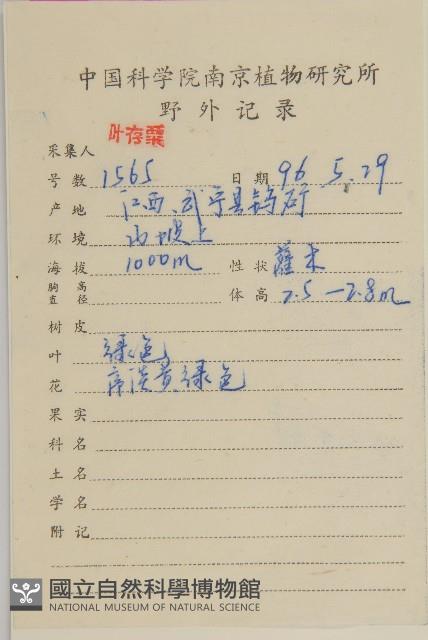 中国科学院南京植物研究所
野外记录
采集人 叶存粟
号数 1565 日期 96 5.29
产地 江西.武宁县钨矿
环境 山坡上
海拔 1000m 性状 灌木
胸高直径 体高 2.5—2.8m
树皮
叶 绿色
花 淡黄绿色
果实
科名
土名
学名
附记
國立自然科學博物館
NATIONAL MUSEUM OF NATURAL SCIENCE